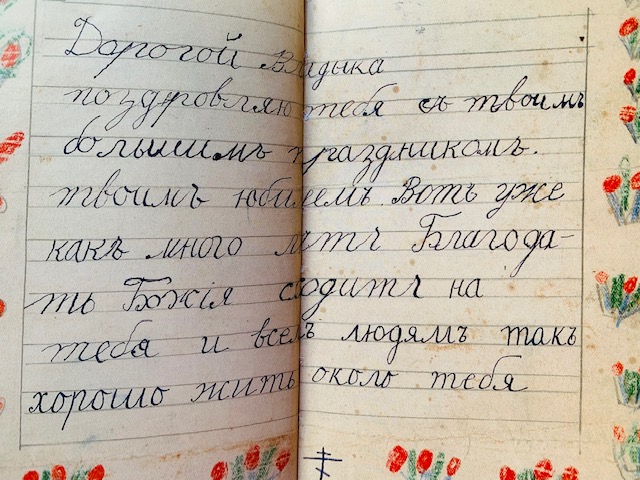 Дорогой Владыка
поздровляю тебя съ твоимъ
большимъ праздникомъ.
твоимъ юбилеемъ. Вотъ уже
какъ много лѣтъ Благода-
ть Божія сходитъ на
тебя и всемъ людямъ такъ
хорошо жить около тебя